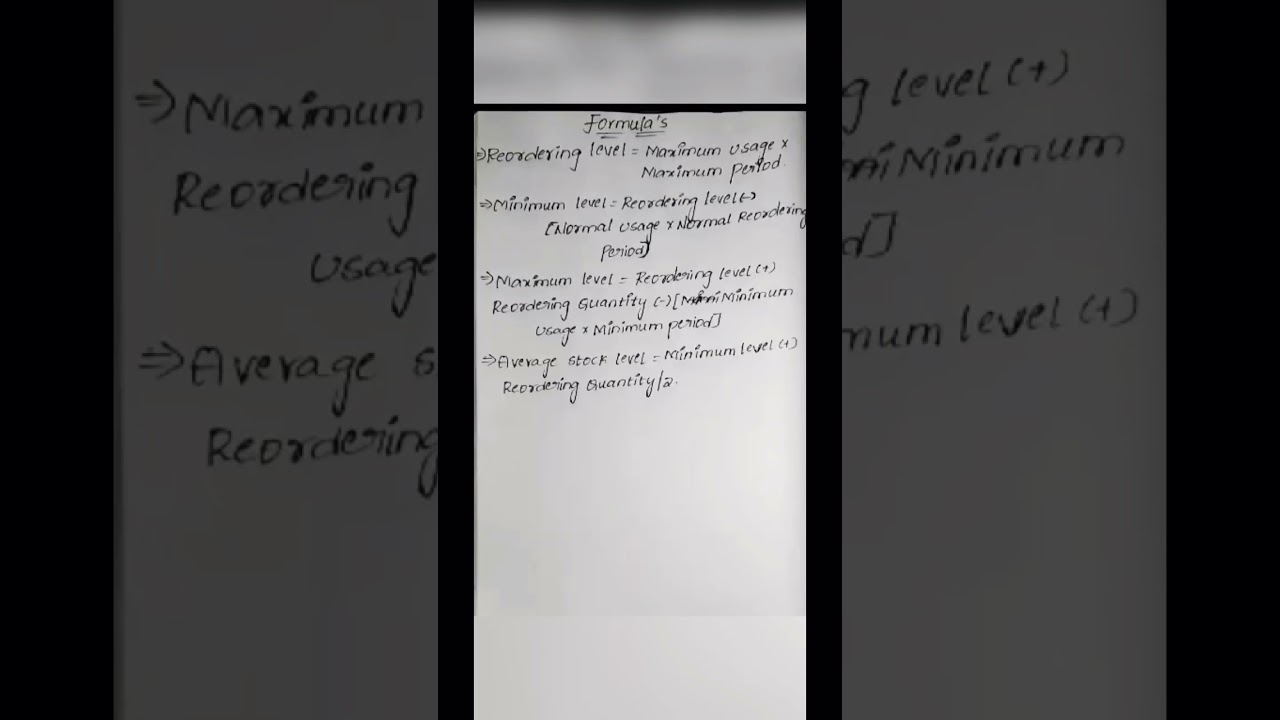 Formula's
⇒Reordering level = Maximum usage ×
Maximum Period.
⇒Minimum level = Reordering level(-)
[Normal usage × Normal Reordering
Period]
⇒Maximum level = Reordering level (+)
Reordering Quantity (-) [Minimum
usage × Minimum period]
⇒Average stock level = Minimum level (+)
Reordering Quantity/2.
⇒Maximum
Reordering
usage
⇒Average s
Reordering
g level (+)
Minimum
d]
mum level (+)